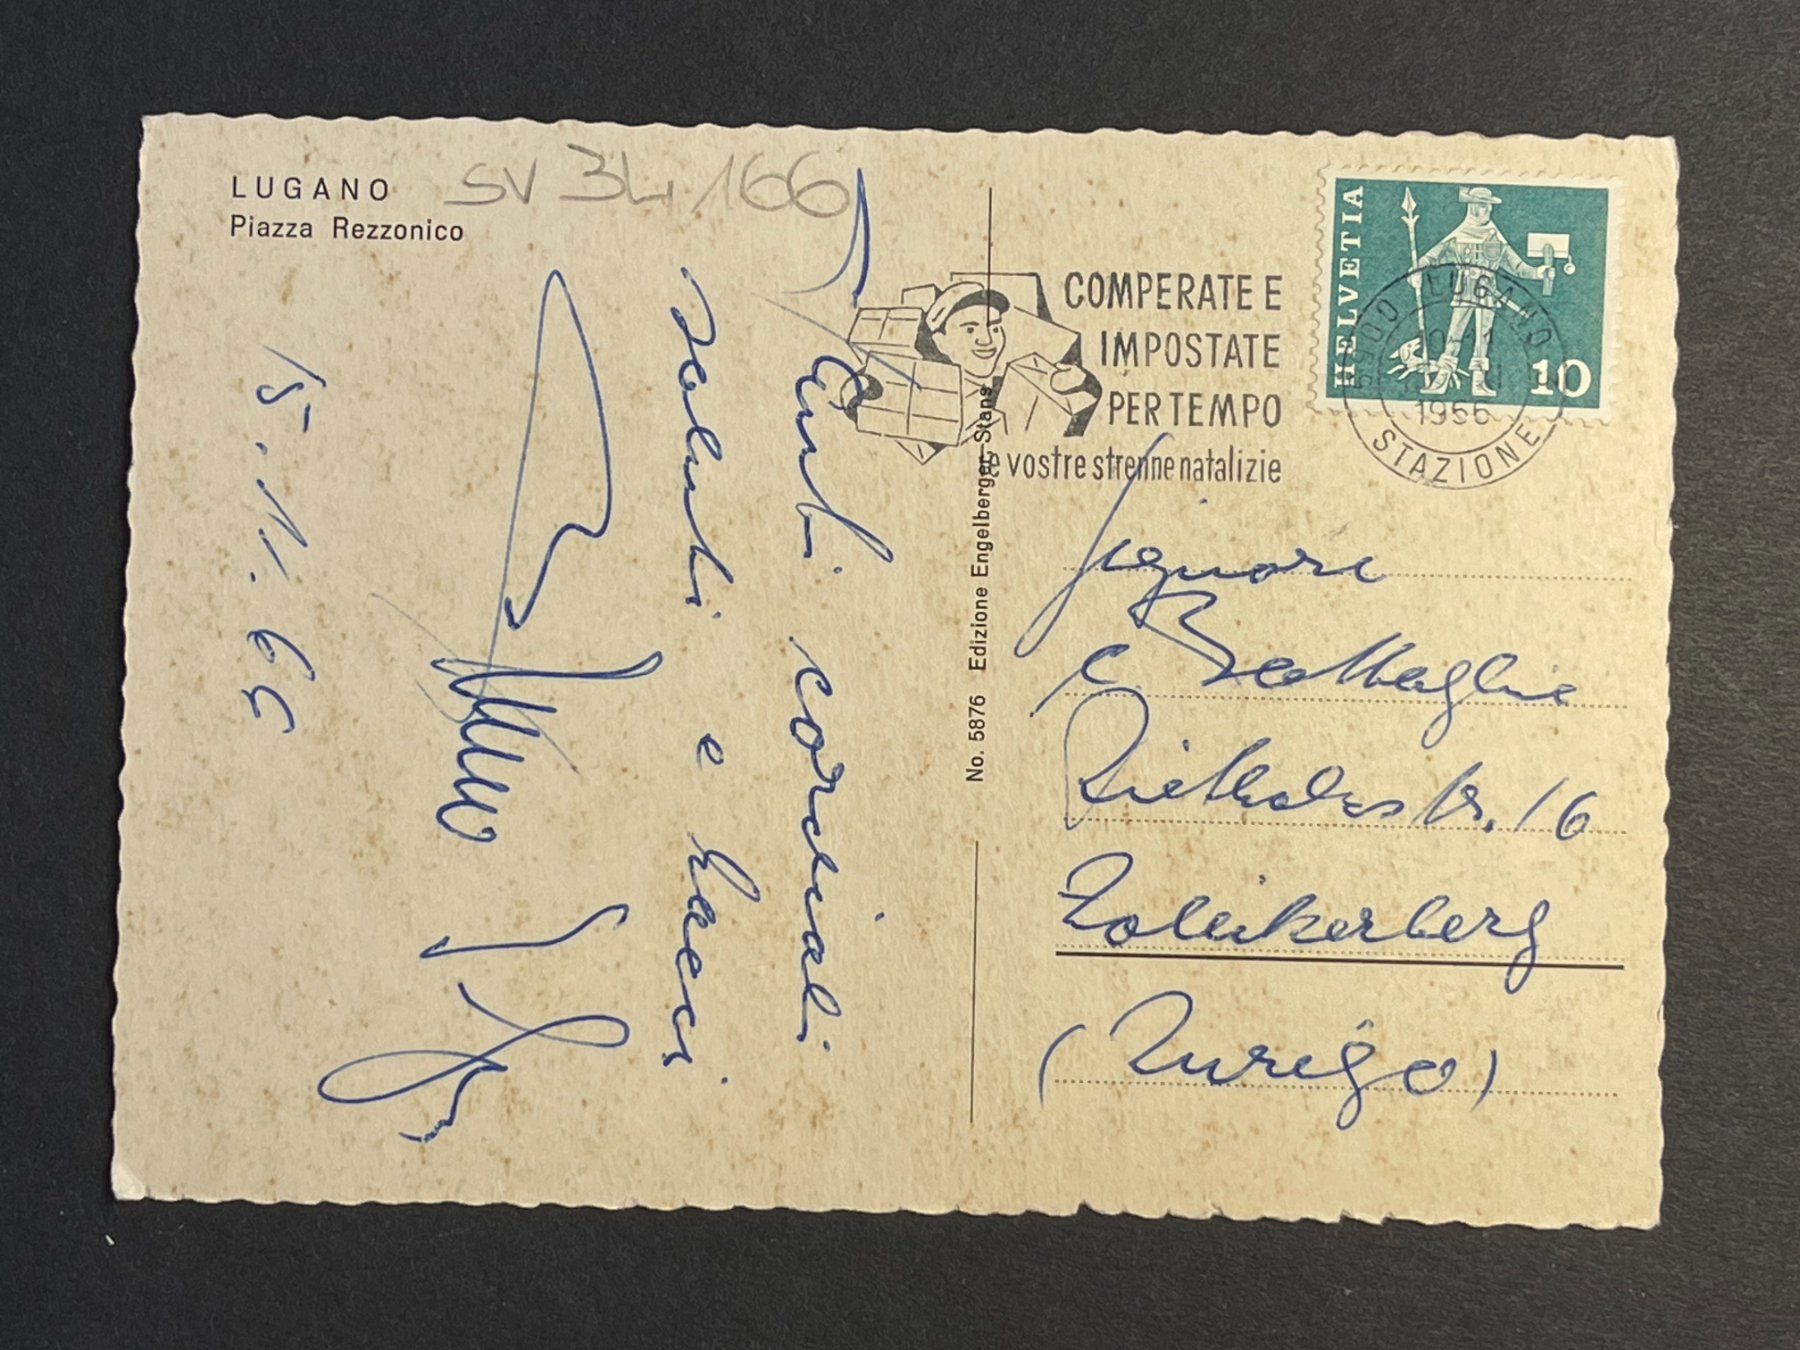 LUGANO
Piazza Rezzonico
SV 34/166
Tanti cordiali
saluti e baci
15.11.65
No. 5876 Edizione Engelberger, Stans
COMPERATE E
IMPOSTATE
PER TEMPO
le vostre strenne natalizie
HELVETIA
10
6900 LUGANO
STAZIONE
Signora
C. Battaglia
16
Zollikerberg
(Zurigo)